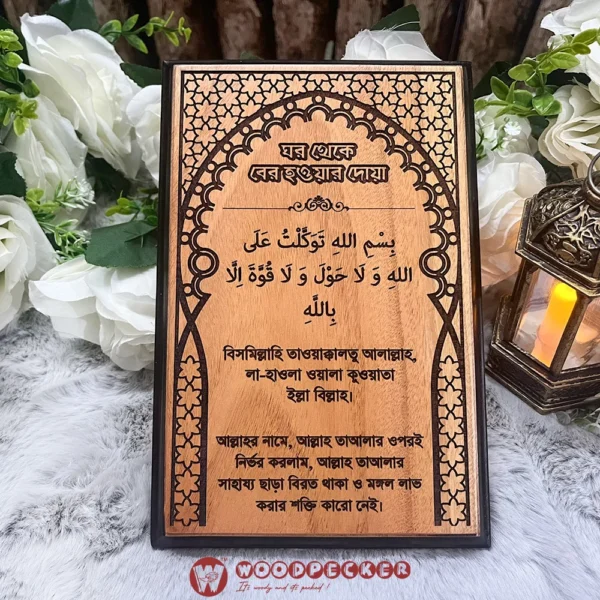 ঘর থেকে
বের হওয়ার দোয়া
بِسْمِ اللهِ تَوَكَّلْتُ عَلَى
اللهِ وَ لَا حَوْلَ وَ لَا قُوَّةَ اِلَّا
بِاللَّهِ
বিসমিল্লাহি তাওয়াক্কালতু আলাল্লাহ,
লা-হাওলা ওয়ালা কূওয়াতা
ইল্লা বিল্লাহ।
আল্লাহর নামে, আল্লাহ তাআলার ওপরই
নির্ভর করলাম, আল্লাহ তাআলার
সাহায্য ছাড়া বিরত থাকা ও মঙ্গল লাভ
করার শক্তি কারো নেই।
WOODPECKER
It's woody and it's pecked !